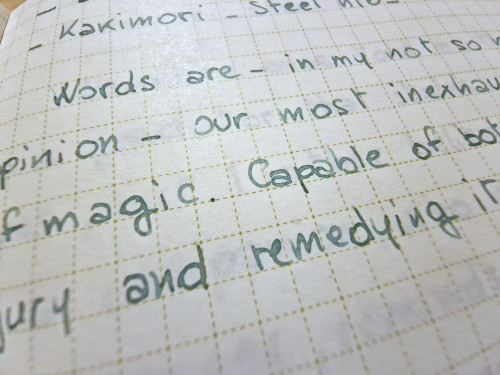 - Kakimori - Steel nib -
Words are - in my not so
pinion - our most inexhau
f magic. Capable of bot
jury and remedying it